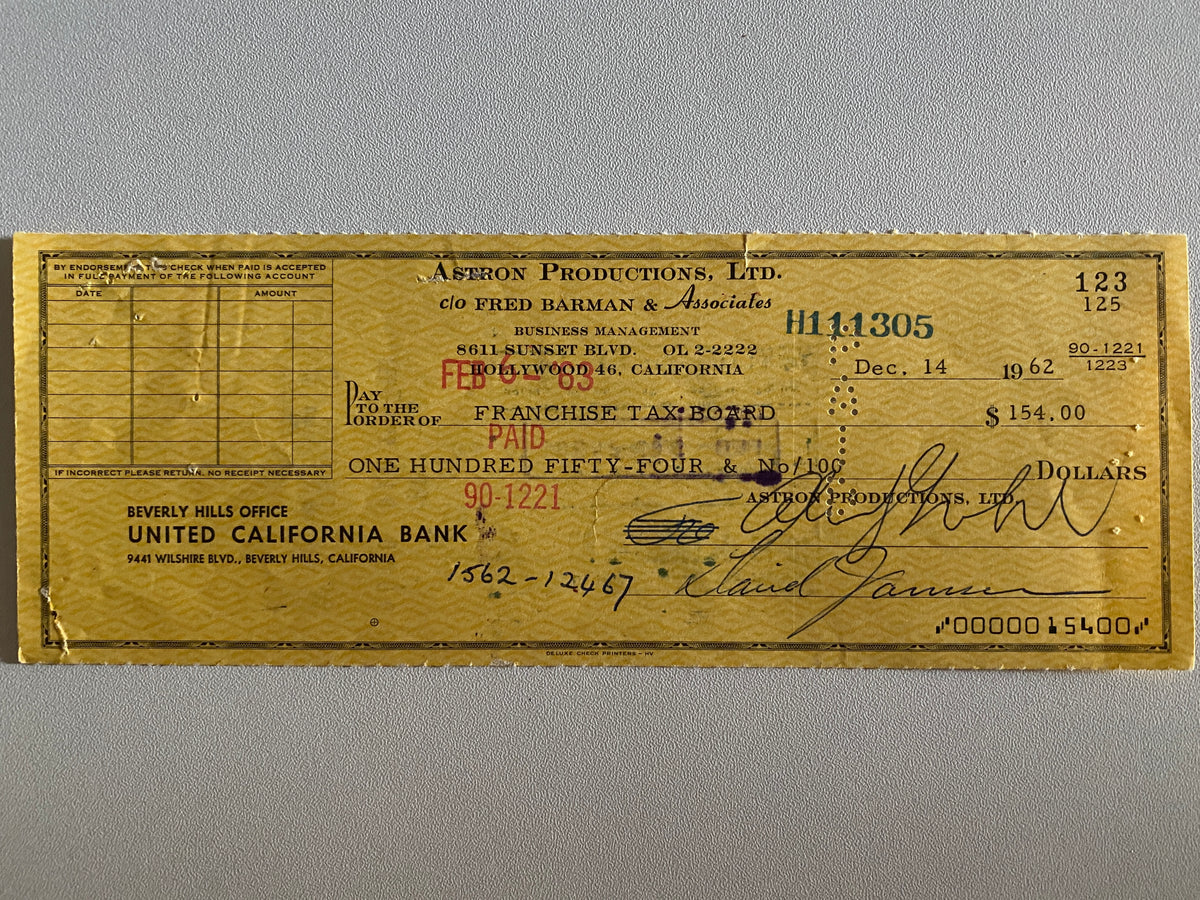 BY ENDORSEMENT THIS CHECK WHEN PAID IS ACCEPTED
IN FULL PAYMENT OF THE FOLLOWING ACCOUNT
DATE AMOUNT
IF INCORRECT PLEASE RETURN. NO RECEIPT NECESSARY
ASTRON PRODUCTIONS, LTD.
c/o FRED BARMAN & Associates
BUSINESS MANAGEMENT
8611 SUNSET BLVD. OL 2-2222
HOLLYWOOD 46, CALIFORNIA
123
125
H111305
90-1221
1223
Dec. 14 1962
FEB 6-'63
PAY TO THE ORDER OF FRANCHISE TAX BOARD $ 154.00
PAID
ONE HUNDRED FIFTY-FOUR & No/100 DOLLARS
90-1221
ASTRON PRODUCTIONS, LTD.
BEVERLY HILLS OFFICE
UNITED CALIFORNIA BANK
9441 WILSHIRE BLVD., BEVERLY HILLS, CALIFORNIA
1562-12467
David Janssen
0000015400
DELUXE CHECK PRINTERS - HV